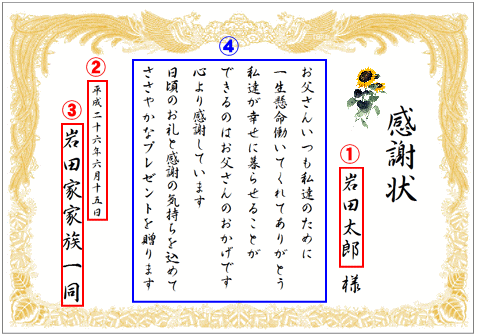 感謝状
①
岩田太郎 様
④
お父さんいつも私達のために
一生懸命働いてくれてありがとう
私達が幸せに暮らせることが
できるのはお父さんのおかげです
心より感謝しています
日頃のお礼と感謝の気持ちを込めて
ささやかなプレゼントを贈ります
②
平成二十六年六月十五日
③
岩田家家族一同